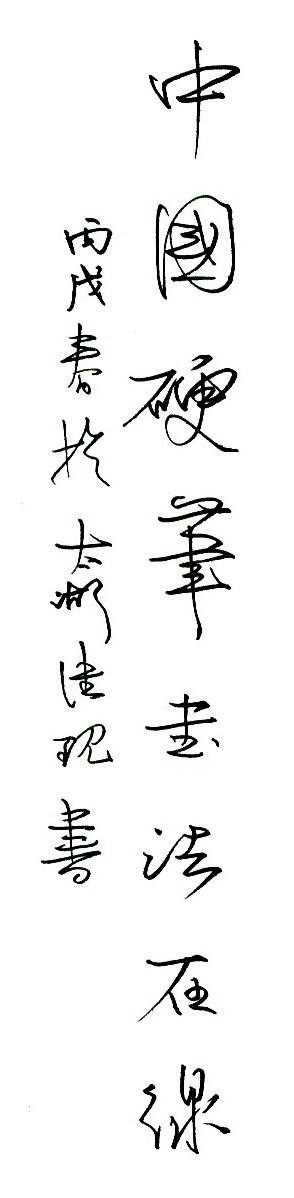 中國硬筆书法在線
丙戌春於太湖佳現書